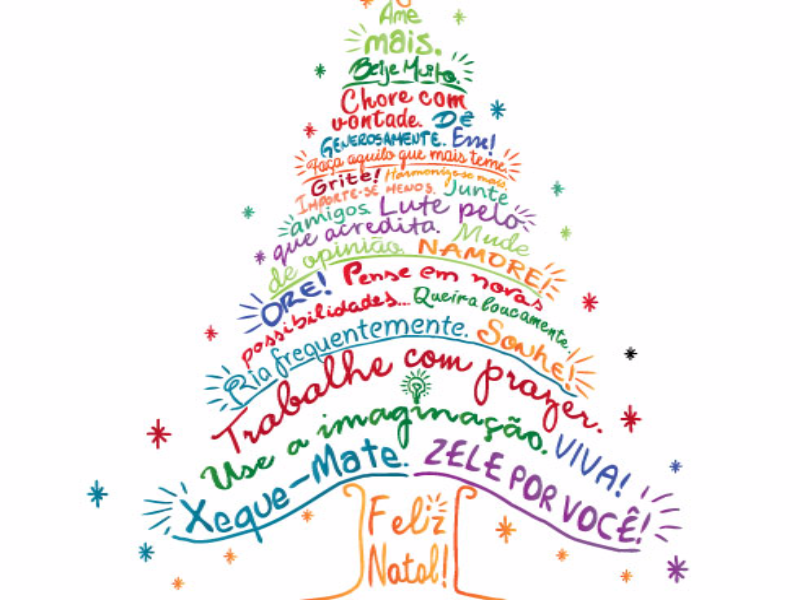 Ame
mais.
Beije Muito.
Chore com
vontade. Dê
Generosamente. Erre!
Faça aquilo que mais teme.
Grite! Harmonize-se mais.
Importe-se menos. Junte
amigos. Lute pelo
que acredita. Mude
de opinião. NAMORE!
ORE! Pense em novas
possibilidades... Queira loucamente.
Ria frequentemente. Sonhe!
Trabalhe com prazer.
Use a imaginação. VIVA!
Xeque-Mate. ZELE POR VOCÊ!
Feliz
Natal!